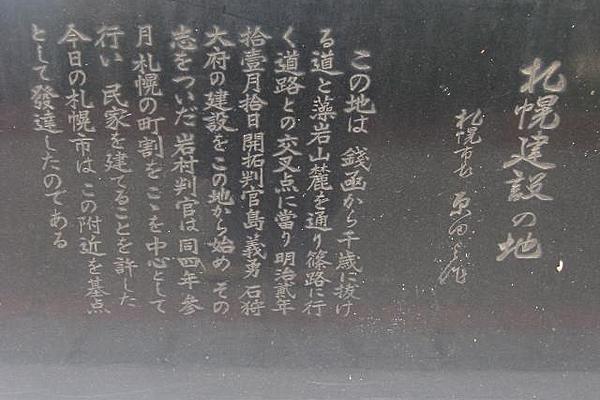 札幌建設の地
札幌市長 原田與作
この地は 錢函から千歳に抜け
る道と藻岩山麓を通り篠路に行
く道路との交叉点に當り明治貳年
拾壹月拾日開拓判官島義勇石狩
大府の建設をこの地から始め その
志をついだ岩村判官は同四年参
月札幌の町割をこゝを中心として
行い 民家を建てることを許した
今日の札幌市は この附近を基点
として發達したのである